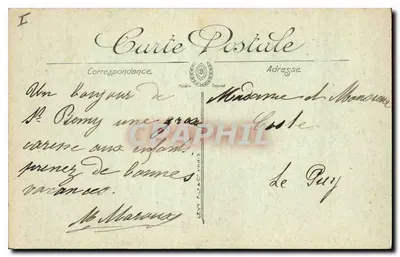 I
Carte Postale
Correspondance
Adresse
Un bonjour de
St Remy une grosse
caresse aux enfants
prenez de bonnes
vacances.
M. Maroux
Madame et Monsieur
Coste
Le Puy
CPAPHIL